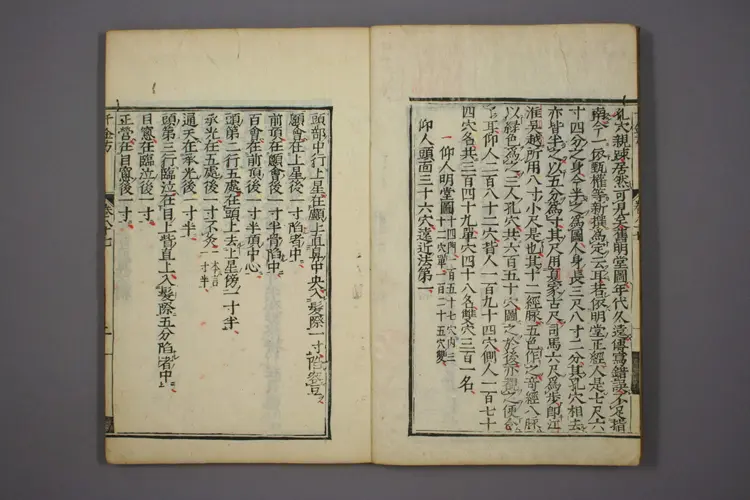 孔穴親疎居然可見矣舊明堂圖年代久遠傳寫錯誤不足指
南今一依甄權等新撰為定云耳若依明堂正經人是七尺六
寸四分之身今半之為圖人身長三尺八寸二分其孔穴相去
亦皆半之以五分為寸其尺用夏家古尺司馬六尺為步即江
淮吳越所用八寸小尺是也其十二經脉五色作之奇經八脉
以綠色為之三人孔穴共六百五十穴圖之於後亦覩之便令
了耳仰人二百八十二穴背人一百九十四穴側人一百七十
四穴名共三百四十九單穴四十八名雙穴三百一名
仰人明堂圖
仰人頭面三十六穴遠近法第一
頭部中行上星在顱上直鼻中央入髮際一寸陷容豆
顖會在上星後一寸陷者中
前頂在顖會後一寸半骨陷中
百會在前頂後一寸半頂中心
頭第二行五處在頭上去上星傍一寸半
承光在五處後一寸不灸一本言一寸半
通天在承光後一寸半
頭第三行臨泣在目上眥直上入髮際五分陷者中
目窓在臨泣後一寸
正營在目窓後一寸
千金方
卷八十七